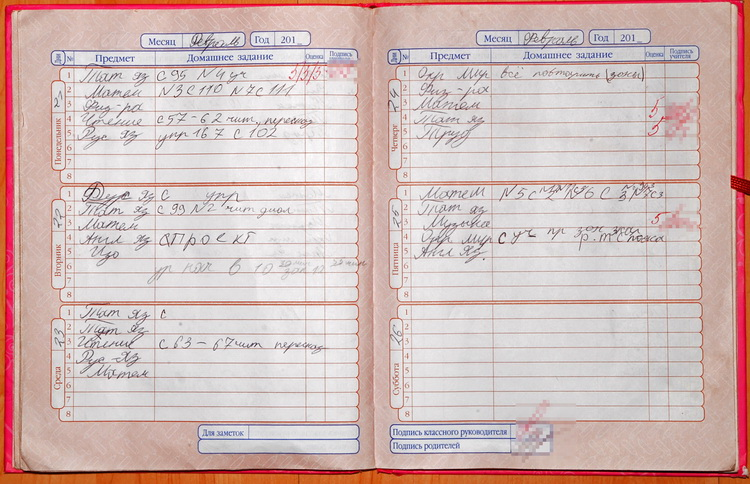 Месяц Февраль Год 201_
Дни № Предмет Домашнее задание Оценка Подпись учителя
Понедельник 21
1 Тат яз с 95 N4 уч 5/5/5
2 Матем N3 с 110 N7 с 111
3 Физ-ра
4 Чтение с 57-62 чит, пересказ
5 Рус яз упр 167 с 102
6
7
8
Вторник 22
1 Рус яз с упр
2 Тат яз с 99 N2 чит диал
3 Матем
4 Англ яз проект
5 Изо
6 ур нач в 10
7
8
Среда 23
1 Тат яз с
2 Тат яз
3 Чтение с 63-67 чит пересказ
4 Рус-яз
5 Матем
6
7
8
Для заметок
Месяц Февраль Год 201_
Дни № Предмет Домашнее задание Оценка Подпись учителя
Четверг 24
1 Окр Мир всё повторить (зоны)
2 Физ-ра
3 Матем
4 Тат яз 5
5 Труд 5
6
7
8
Пятница 25
1 Матем N5 с N6 с
2 Тат яз
3 Музыка 5
4 Окр мир с уч пр зон
5 Англ яз.
6
7
8
Суббота 26
1
2
3
4
5
6
7
8
Подпись классного руководителя
Подпись родителей